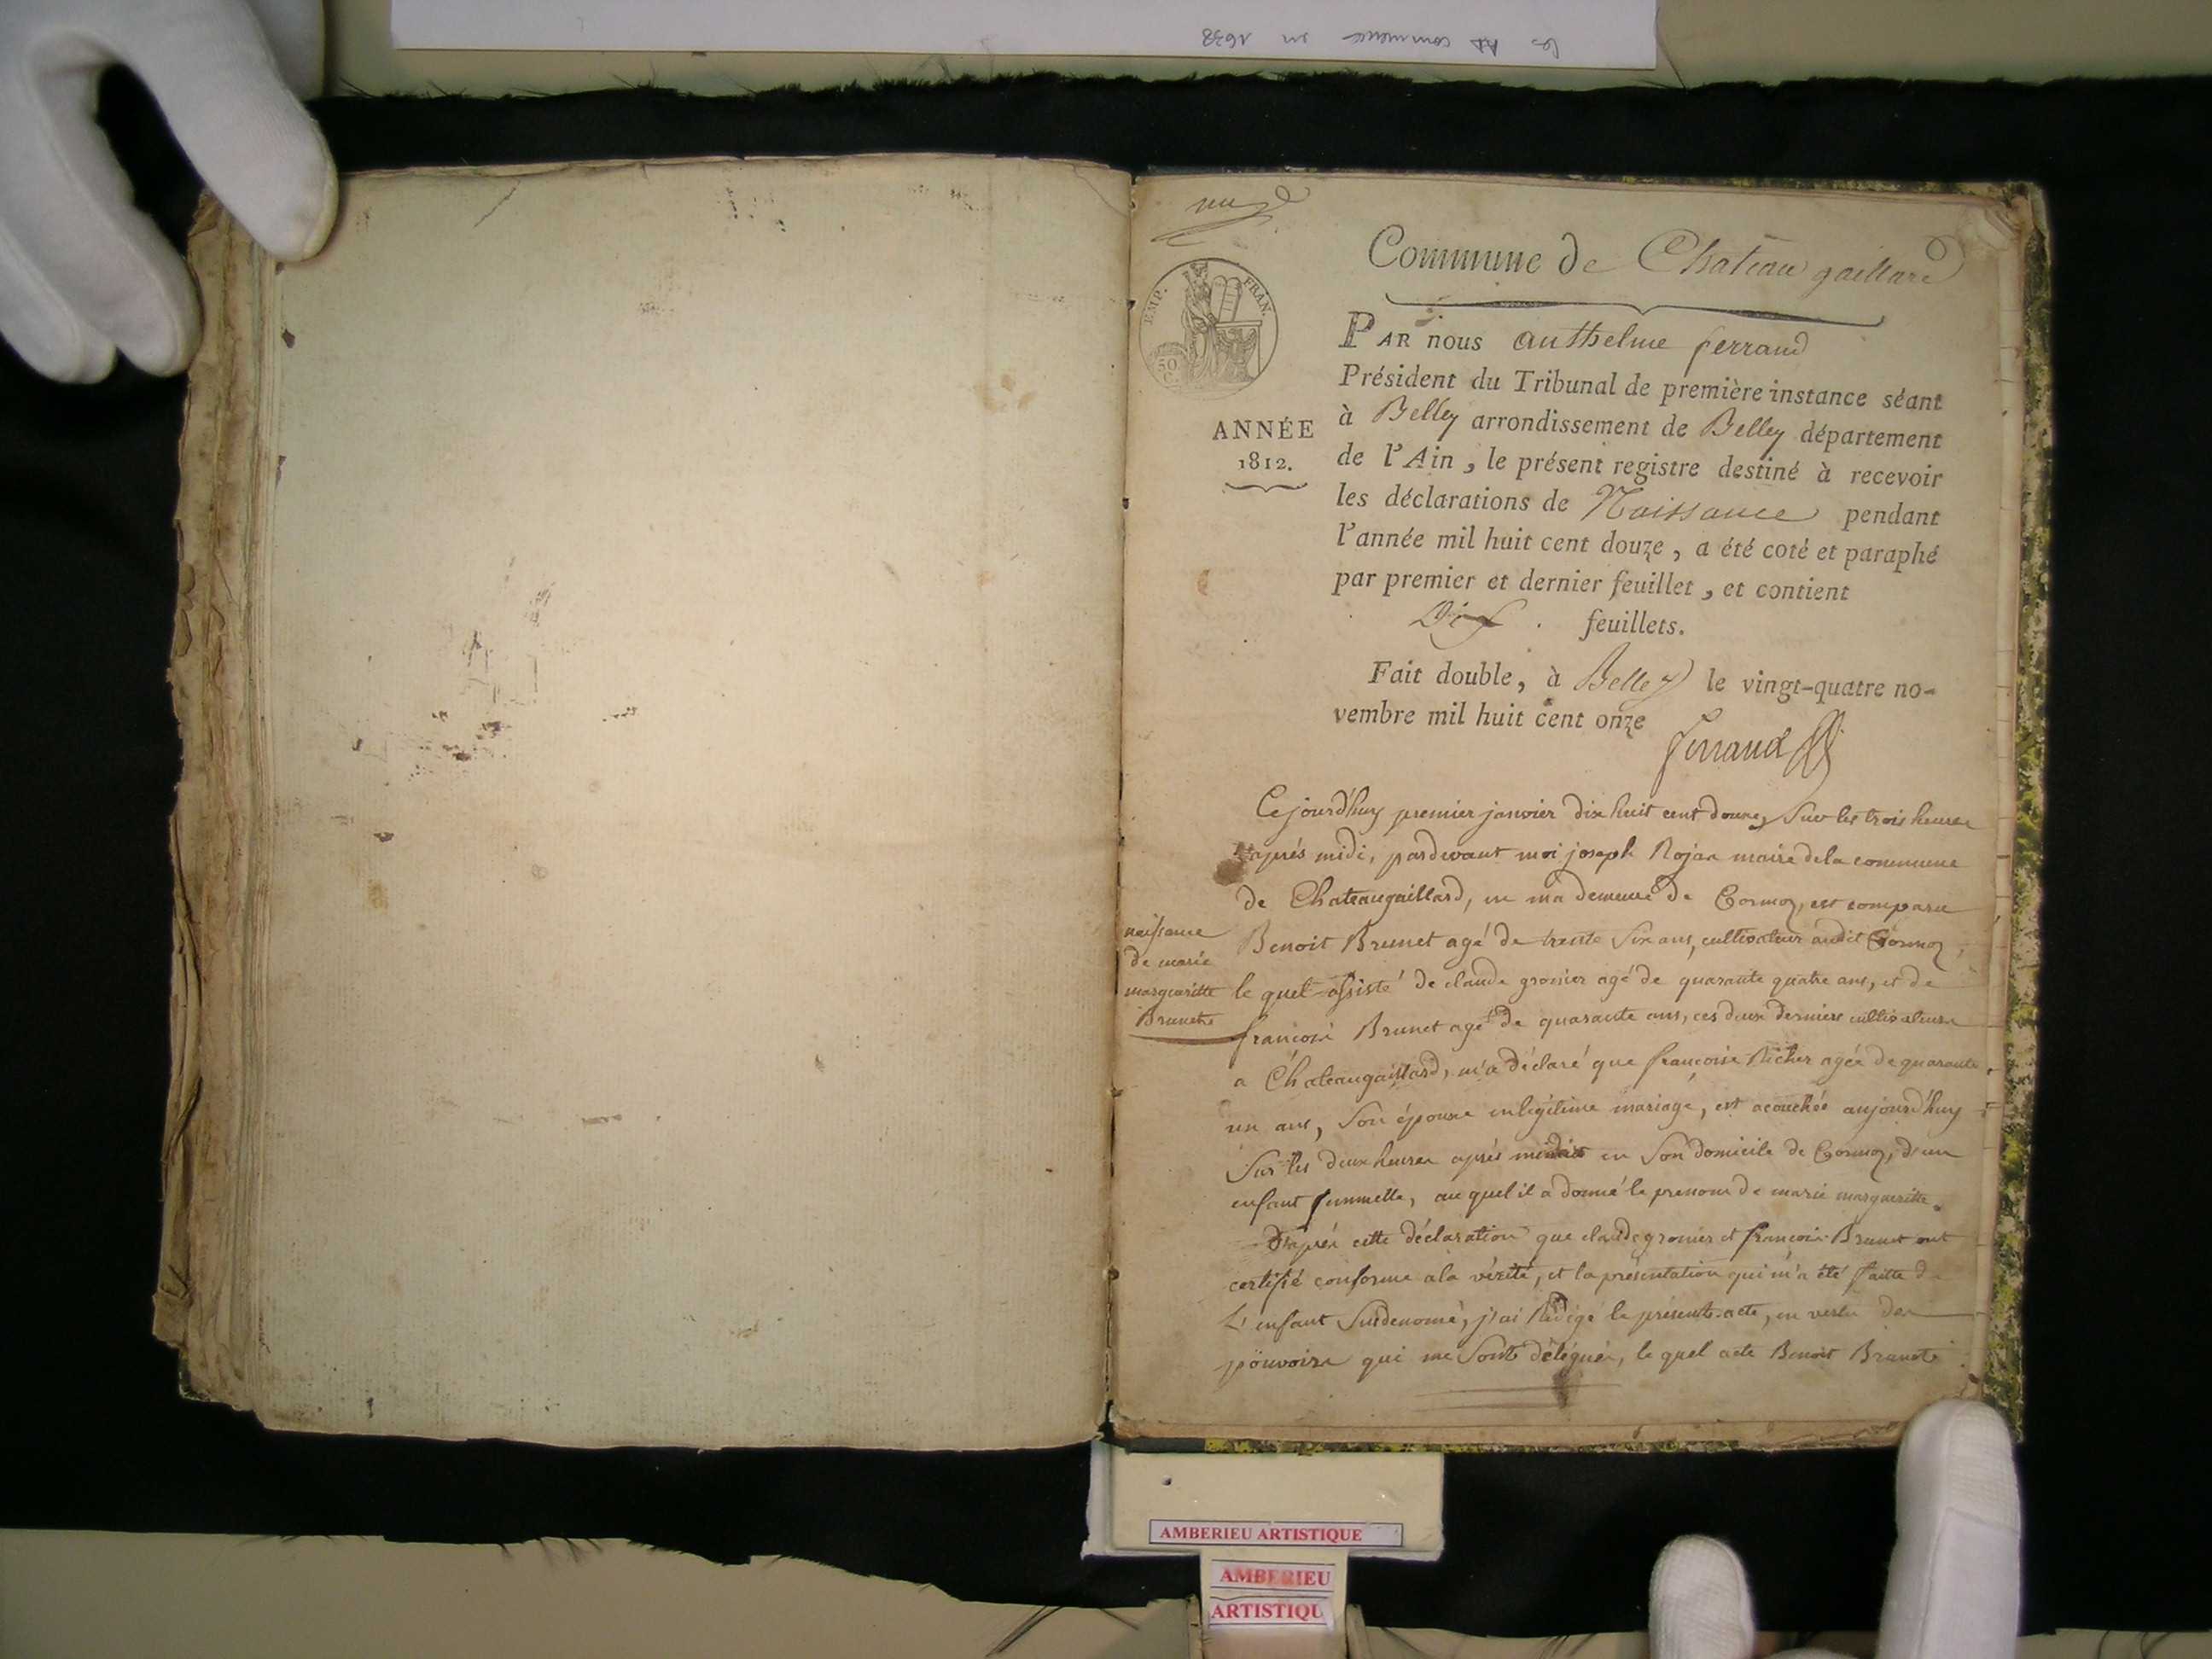 les AD commence en 1638
Commune de Chateau gaillard
EMP. FRAN.
50
C.
ANNÉE
1812.
PAR nous anthelme ferrand
Président du Tribunal de première instance séant
à Belley arrondissement de Belley département
de l'Ain, le présent registre destiné à recevoir
les déclarations de Naissance pendant
l'année mil huit cent douze, a été coté et paraphé
par premier et dernier feuillet, et contient
Dix feuillets.
Fait double, à Belley le vingt-quatre no-
vembre mil huit cent onze
ferrand
naissance
de marie
margueritte
Brunet
Cejourd'huy premier janvier dix huit cent douze, Sur les trois heures
d'après midi, pardevant moi joseph Rojan maire dela commune
de Chateaugaillard, en ma demeure de Cormoz, est comparu
Benoit Brunet agé de trente Six ans, cultivateur audit Cormoz,
le quel assisté de claude gronier agé de quarante quatre ans, et de
françois Brunet agé de quarante ans, ces deux derniers cultivateurs
a Chateaugaillard, m'a déclaré que françoise Richer agée de quarante
un ans, Son épouse en légitime mariage, est acouchée aujourd'huy
Sur les deux heures après minuit en Son domicile de Cormoz, d'un
enfant femmelle, au quel il a donné le prenom de marie margueritte.
D'après cette déclaration que claude gronier et françois Brunet ont
certifié conforme ala vérité, et la présentation qui m'a été faitte d
L'enfant Susdenomé, j'ai Rédigé le présent acte, en vertu des
pouvoirs qui me Sont délégués, le quel acte Benoit Brunet
AMBERIEU ARTISTIQUE
AMBERIEU
ARTISTIQU